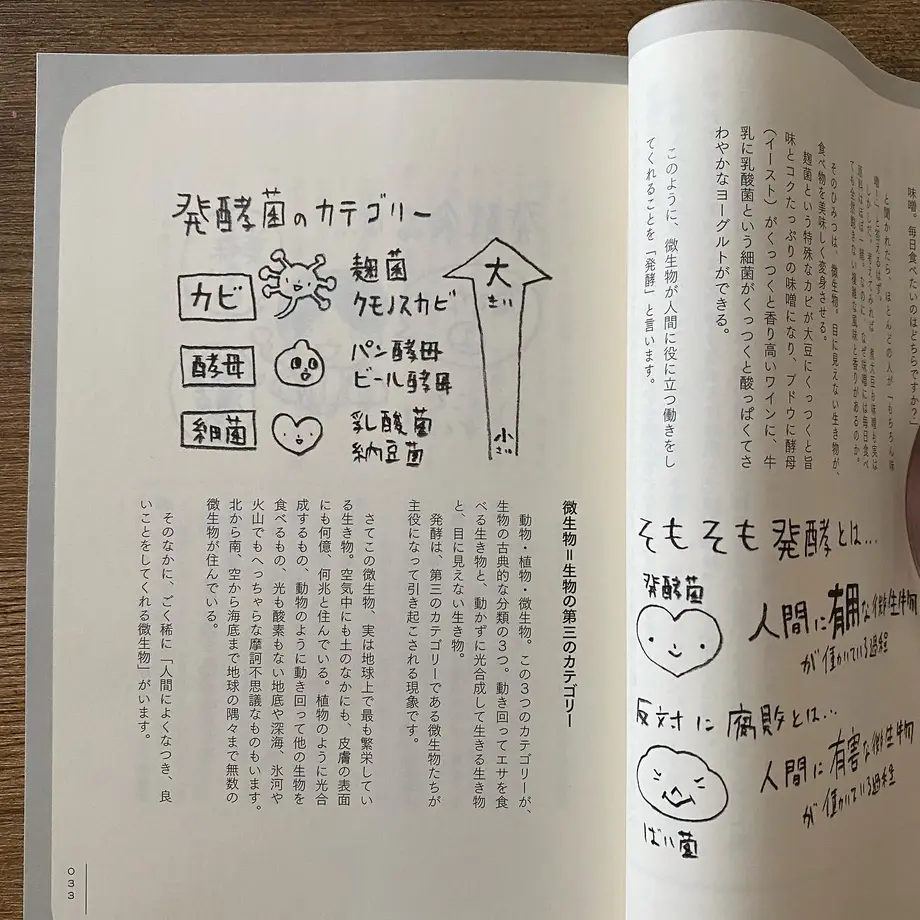 味噌、毎日食べたいのはどちらですか？」
と聞かれたら、ほとんどの人が「もちろん味
噌！」と答えるはず。
しかしだ。考えてみれば、煮大豆も味噌も実は
原料はほぼ一緒。なのに、なぜ味噌には毎日食べ
ても全然飽きない複雑な風味と香りがあるのか。
そのひみつは、微生物。目に見えない生き物が、
食べ物を美味しく変身させる。
麹菌という特殊なカビが大豆にくっつくと旨
味とコクたっぷりの味噌になり、ブドウに酵母
（イースト）がくっつくと香り高いワインに、牛
乳に乳酸菌という細菌がくっつくと酸っぱくてさ
わやかなヨーグルトができる。
このように、微生物が人間に役に立つ働きをし
てくれることを「発酵」と言います。
そもそも発酵とは…
発酵菌
人間に有用な微生物
が働いている過程
反対に腐敗とは…
人間に有害な微生物
が働いている過程
ばい菌
発酵菌のカテゴリー
カビ
麹菌
クモノスカビ
酵母
パン酵母
ビール酵母
細菌
乳酸菌
納豆菌
大
きい
小
さい
微生物＝生物の第三のカテゴリー
動物・植物・微生物。この３つのカテゴリーが、
生物の古典的な分類の３つ。動き回ってエサを食
べる生き物と、動かずに光合成して生きる生き物
と、目に見えない生き物。
発酵は、第三のカテゴリーである微生物たちが
主役になって引き起こされる現象です。
さてこの微生物、実は地球上で最も繁栄してい
る生き物。空気中にも土のなかにも、皮膚の表面
にも何億、何兆と住んでいる。植物のように光合
成するもの、動物のように動き回って他の生物を
食べるもの、光も酸素もない地底や深海、氷河や
火山でもへっちゃらな摩訶不思議なものもいます。
北から南、空から海底まで地球の隅々まで無数の
微生物が住んでいる。
そのなかに、ごく稀に「人間によくなつき、良
いことをしてくれる微生物」がいます。
033